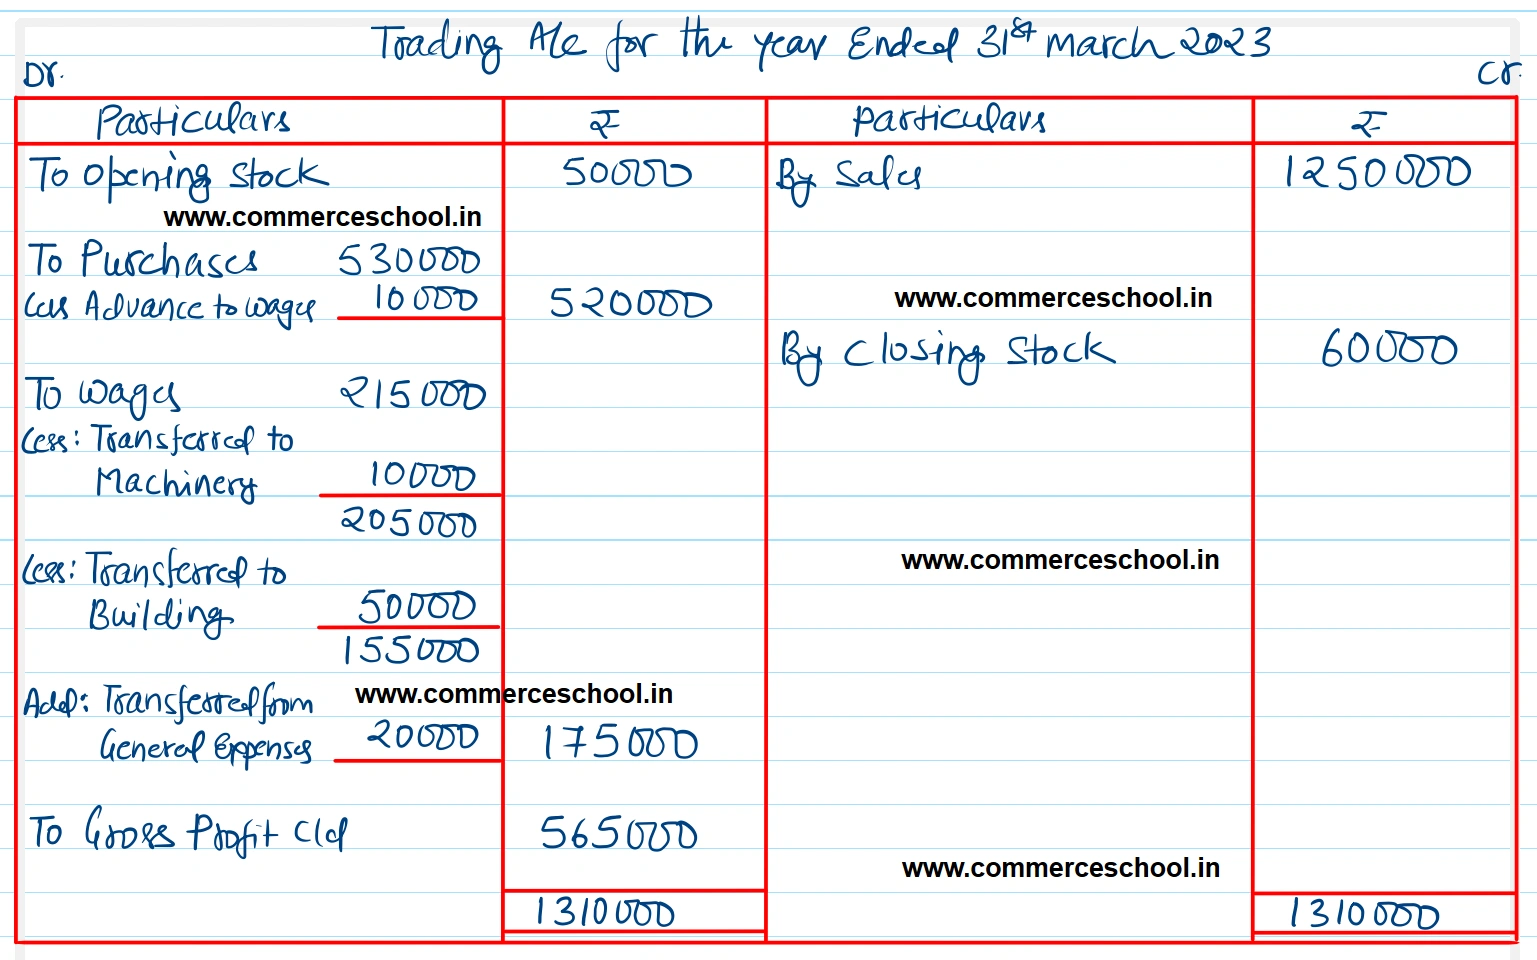 Trading A/c for the year Ended 31st March 2023
Dr. Cr.
Particulars ₹ Particulars ₹
To Opening Stock 50000 By Sales 1250000
www.commerceschool.in
To Purchases 530000
Less Advance to wages 10000 520000 www.commerceschool.in
By Closing Stock 60000
To wages 215000
Less: Transferred to
Machinery 10000
205000
Less: Transferred to www.commerceschool.in
Building 50000
155000
Add: Transferred from www.commerceschool.in
General Expenses 20000 175000
To Gross Profit c/d 565000
www.commerceschool.in
1310000 1310000